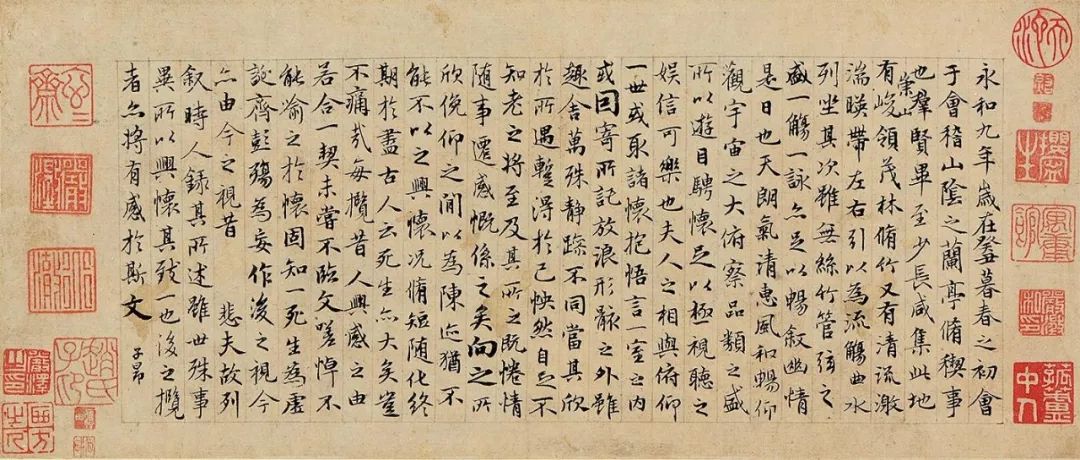 永和九年歲在癸丑暮春之初會
于會稽山陰之蘭亭脩禊事
也羣賢畢至少長咸集此地
有崇山峻領茂林脩竹又有清流激
湍暎帶左右引以為流觴曲水
列坐其次雖無絲竹管弦之
盛一觴一詠亦足以暢敘幽情
是日也天朗氣清惠風和暢仰
觀宇宙之大俯察品類之盛
所以遊目騁懷足以極視聽之
娛信可樂也夫人之相與俯仰
一世或取諸懷抱悟言一室之內
或因寄所託放浪形骸之外雖
趣舍萬殊靜躁不同當其欣
於所遇蹔得於己怏然自足不
知老之將至及其所之既惓情
隨事遷感慨係之矣向之所
欣俛仰之閒以為陳迹猶不
能不以之興懷況脩短隨化終
期於盡古人云死生亦大矣豈
不痛哉每攬昔人興感之由
若合一契未嘗不臨文嗟悼不
能喻之於懷固知一死生為虛
誕齊彭殤為妄作後之視今
亦由今之視昔 悲夫故列
敘時人錄其所述雖世殊事
異所以興懷其致一也後之攬
者亦將有感於斯文
子昂
趙氏子昂